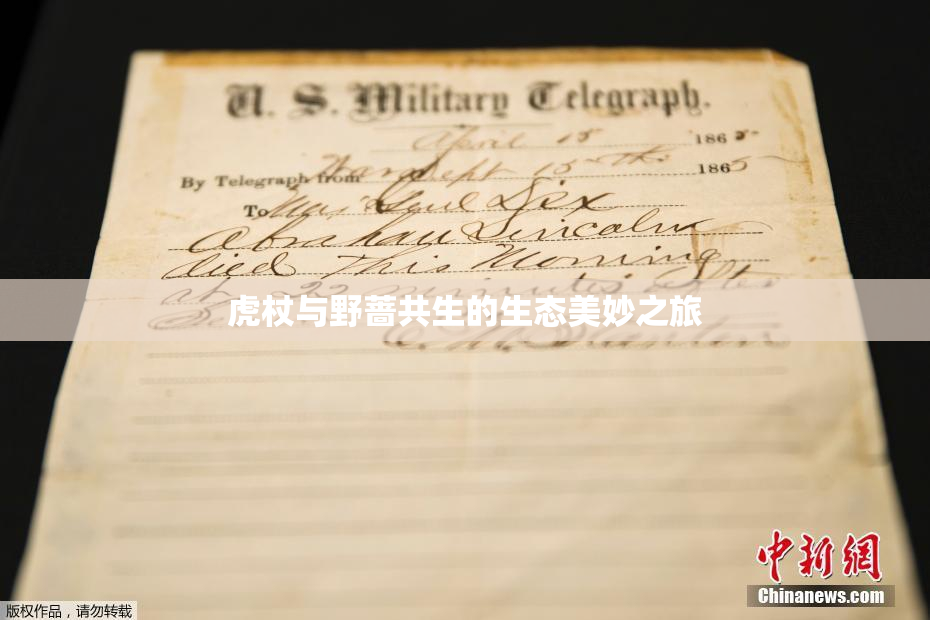 U. S. Military Telegraph.
April 15 1865
By Telegraph from War Dept 15th 1865
To Maj Genl Dix
Abraham Lincoln
died This Morning
at 22 minutes after
虎杖与野蔷共生的生态美妙之旅
E. M. Stanton
中新网
Chinanews.com
版权作品，请勿转载